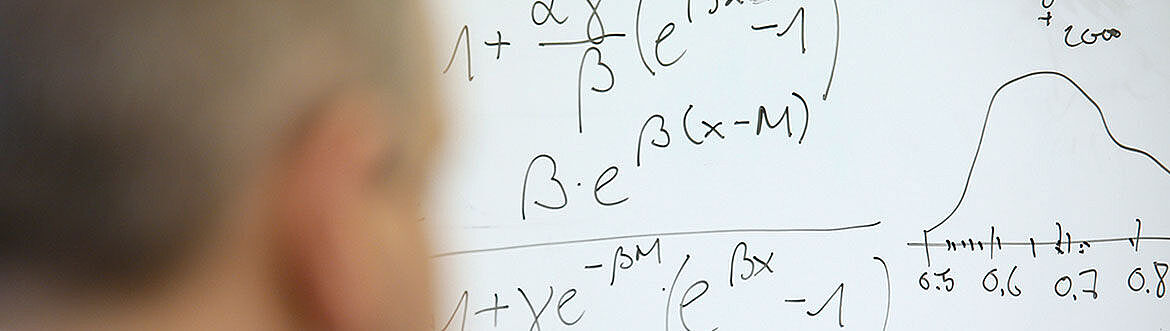 1 + αγ/β (e^βx - 1)
+
2000
β · e^β(x-M)
1 + γe^-βM · (e^βx - 1)
0.5 0,6 0,7 0.8